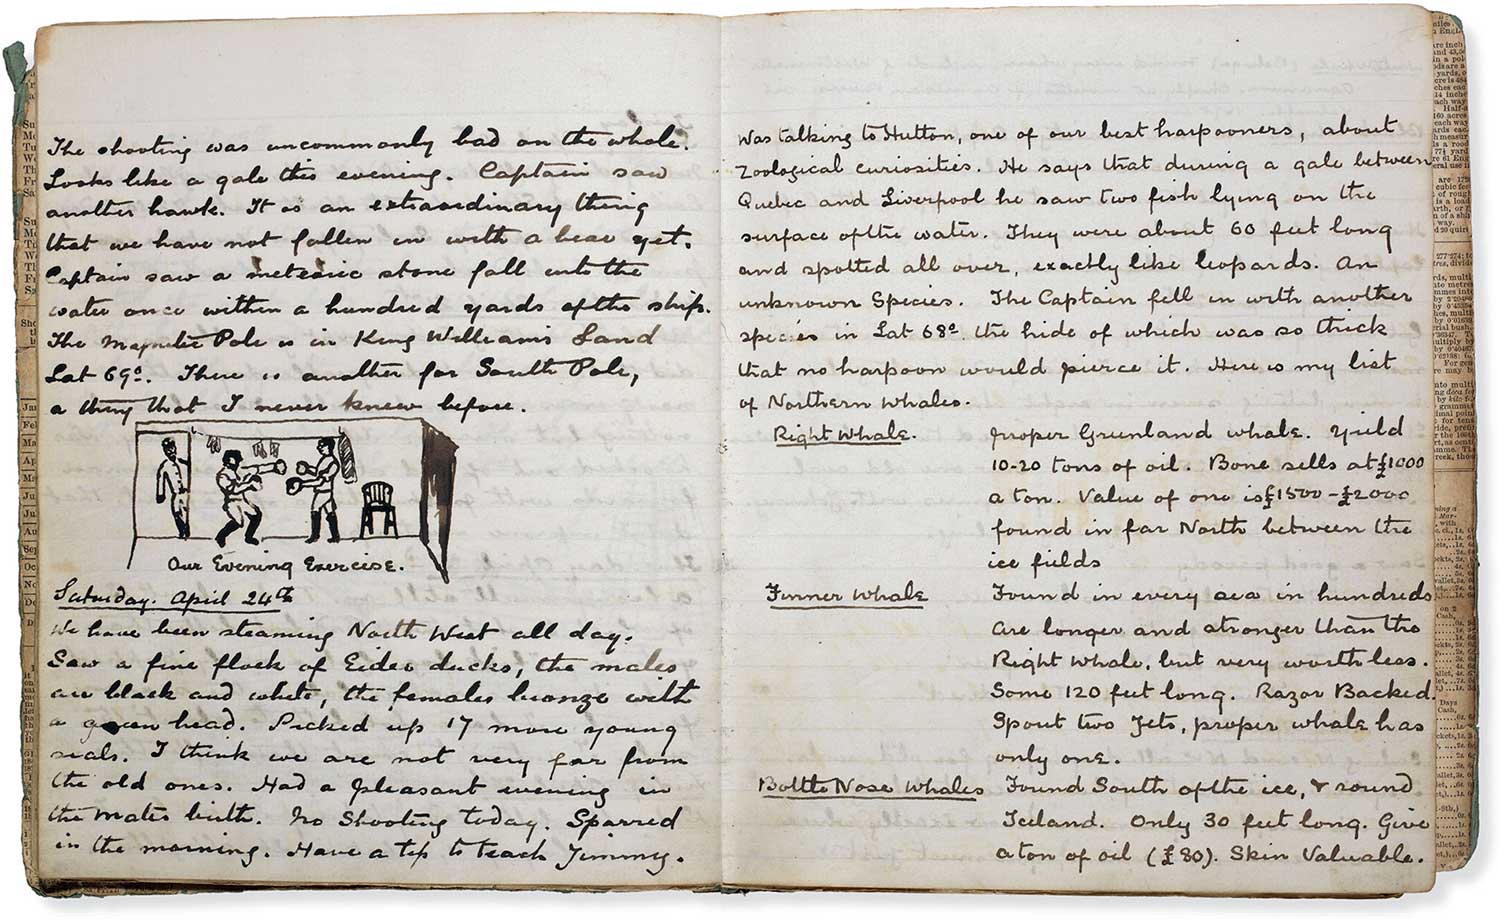 The shooting was uncommonly bad on the whole.
Looks like a gale this evening. Captain saw
another hawk. It is an extraordinary thing
that we have not fallen in with a bear yet.
Captain saw a meteoric stone fall into the
water once within a hundred yards of the ship.
The Magnetic Pole is in King William's Land
Lat 69°. There is another for South Pole,
a thing that I never knew before.
Our Evening Exercise.
Saturday. April 24th
We have been steaming North West all day.
Saw a fine flock of Eider ducks, the males
are black and white, the females bronze with
a green head. Picked up 17 more young
seals. I think we are not very far from
the old ones. Had a pleasant evening in
the mates birth. No Shooting today. Sparred
in the morning. Have a tip to teach Jimmy.
Was talking to Hutton, one of our best harpooners, about
zoological curiosities. He says that during a gale between
Quebec and Liverpool he saw two fish lying on the
surface of the water. They were about 60 feet long
and spotted all over, exactly like leopards. An
unknown Species. The Captain fell in with another
species in Lat 68° the hide of which was so thick
that no harpoon would pierce it. Here is my list
of Northern Whales.
Right Whale. Proper Greenland whale. Yield
10-20 tons of oil. Bone sells at £1000
a ton. Value of one is £1500 - £2000
found in far North between the
ice fields
Finner Whale Found in every sea in hundreds
are longer and stronger than the
Right Whale, but very worthless.
Some 120 feet long. Razor Backed.
Spout two Jets, proper whale has
only one.
Bottle Nose Whales Found South of the ice, & round
Iceland. Only 30 feet long. Give
a ton of oil (£80). Skin Valuable.